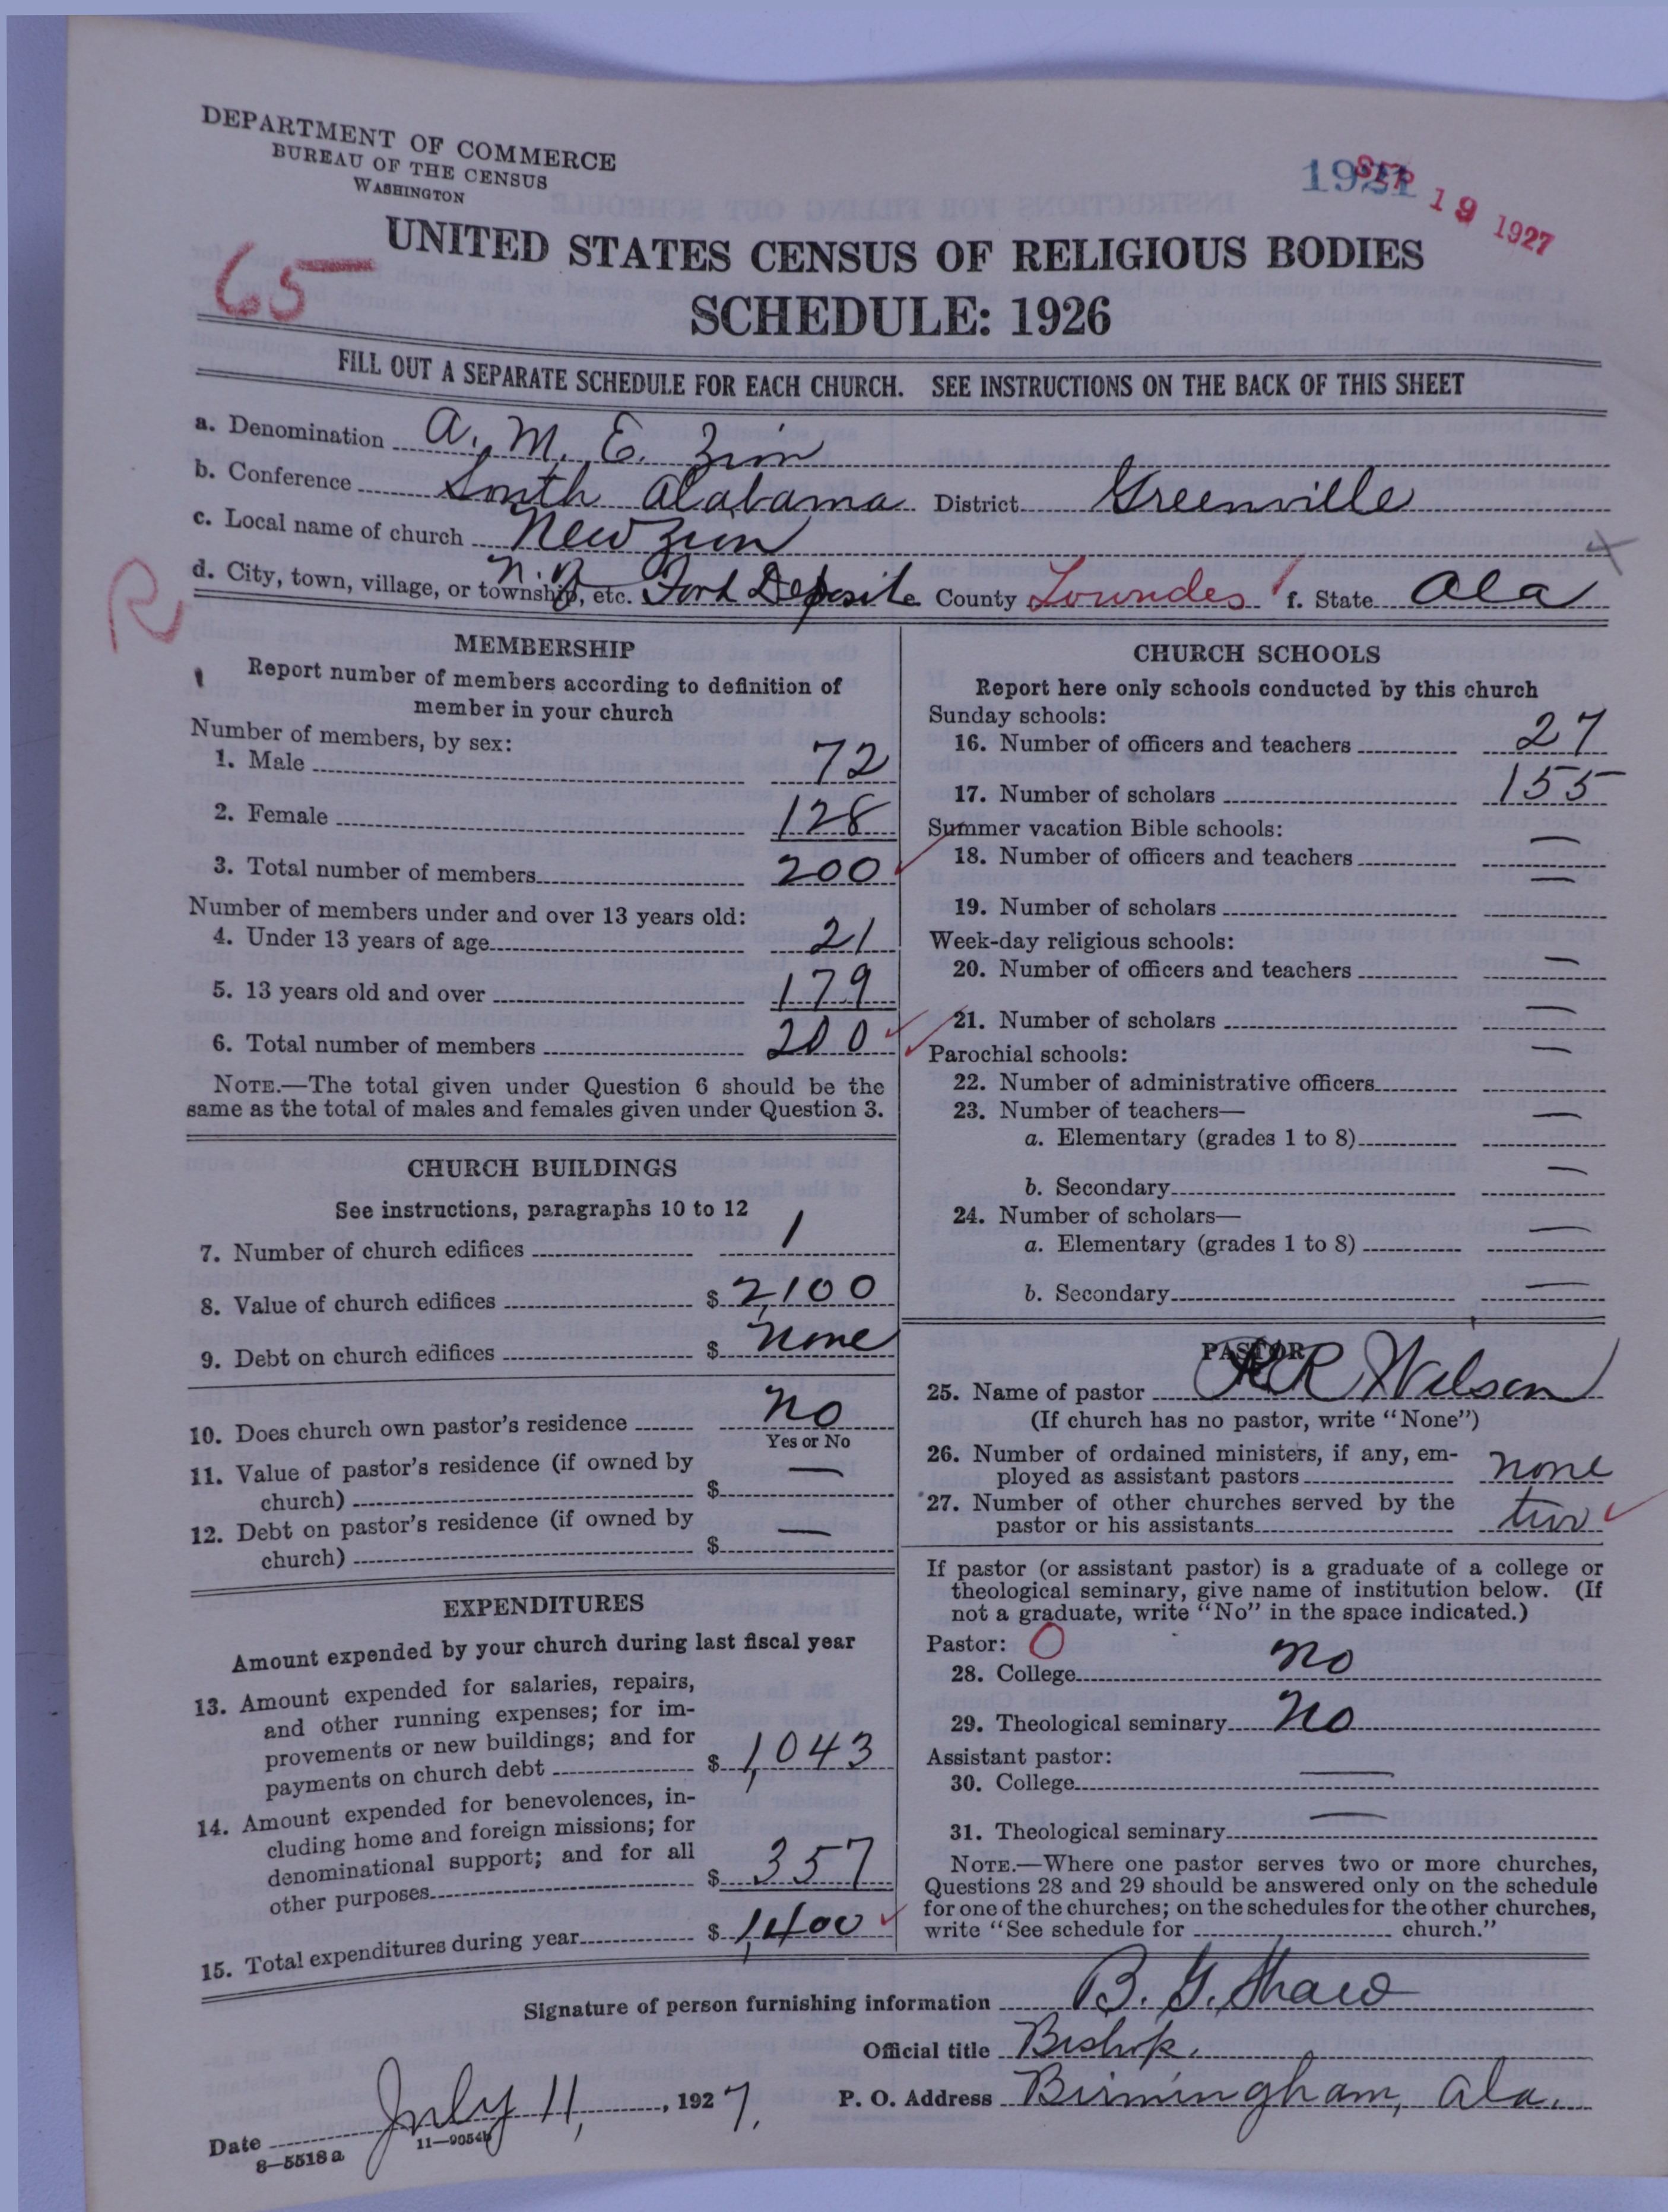 DEPARTMENT OF COMMERCE
BUREAU OF THE CENSUS
WASHINGTON
SEP 19 1927
65
UNITED STATES CENSUS OF RELIGIOUS BODIES
SCHEDULE: 1926
FILL OUT A SEPARATE SCHEDULE FOR EACH CHURCH. SEE INSTRUCTIONS ON THE BACK OF THIS SHEET
a. Denomination A. M. E. Zion
b. Conference South Alabama District Greenville
c. Local name of church New Zion
d. City, town, village, or township, etc. Fort Deposite County Lowndes f. State Ala
R
MEMBERSHIP
Report number of members according to definition of
member in your church
Number of members, by sex:
1. Male 72
2. Female 128
3. Total number of members 200
Number of members under and over 13 years old:
4. Under 13 years of age 21
5. 13 years old and over 179
6. Total number of members 200
NOTE.—The total given under Question 6 should be the
same as the total of males and females given under Question 3.
CHURCH BUILDINGS
See instructions, paragraphs 10 to 12
7. Number of church edifices 1
8. Value of church edifices $ 2,100
9. Debt on church edifices $ none
10. Does church own pastor's residence no
Yes or No
11. Value of pastor's residence (if owned by
church) $ —
12. Debt on pastor's residence (if owned by
church) $ —
EXPENDITURES
Amount expended by your church during last fiscal year
13. Amount expended for salaries, repairs,
and other running expenses; for im-
provements or new buildings; and for
payments on church debt $ 1,043
14. Amount expended for benevolences, in-
cluding home and foreign missions; for
denominational support; and for all
other purposes $ 357
15. Total expenditures during year $ 1,400
CHURCH SCHOOLS
Report here only schools conducted by this church
Sunday schools:
16. Number of officers and teachers 27
17. Number of scholars 155
Summer vacation Bible schools:
18. Number of officers and teachers —
19. Number of scholars —
Week-day religious schools:
20. Number of officers and teachers —
21. Number of scholars —
Parochial schools:
22. Number of administrative officers —
23. Number of teachers—
a. Elementary (grades 1 to 8) —
b. Secondary —
24. Number of scholars—
a. Elementary (grades 1 to 8) —
b. Secondary —
PASTOR
25. Name of pastor R R Wilson
(If church has no pastor, write "None")
26. Number of ordained ministers, if any, em-
ployed as assistant pastors none
27. Number of other churches served by the
pastor or his assistants two
If pastor (or assistant pastor) is a graduate of a college or
theological seminary, give name of institution below. (If
not a graduate, write "No" in the space indicated.)
Pastor: O
28. College no
29. Theological seminary No
Assistant pastor:
30. College —
31. Theological seminary —
NOTE.—Where one pastor serves two or more churches,
Questions 28 and 29 should be answered only on the schedule
for one of the churches; on the schedules for the other churches,
write "See schedule for church."
Signature of person furnishing information B. G. Shaw
Official title Bishop.
Date July 11, 1927. P. O. Address Birmingham, Ala.
8—5518 a 11—9054b